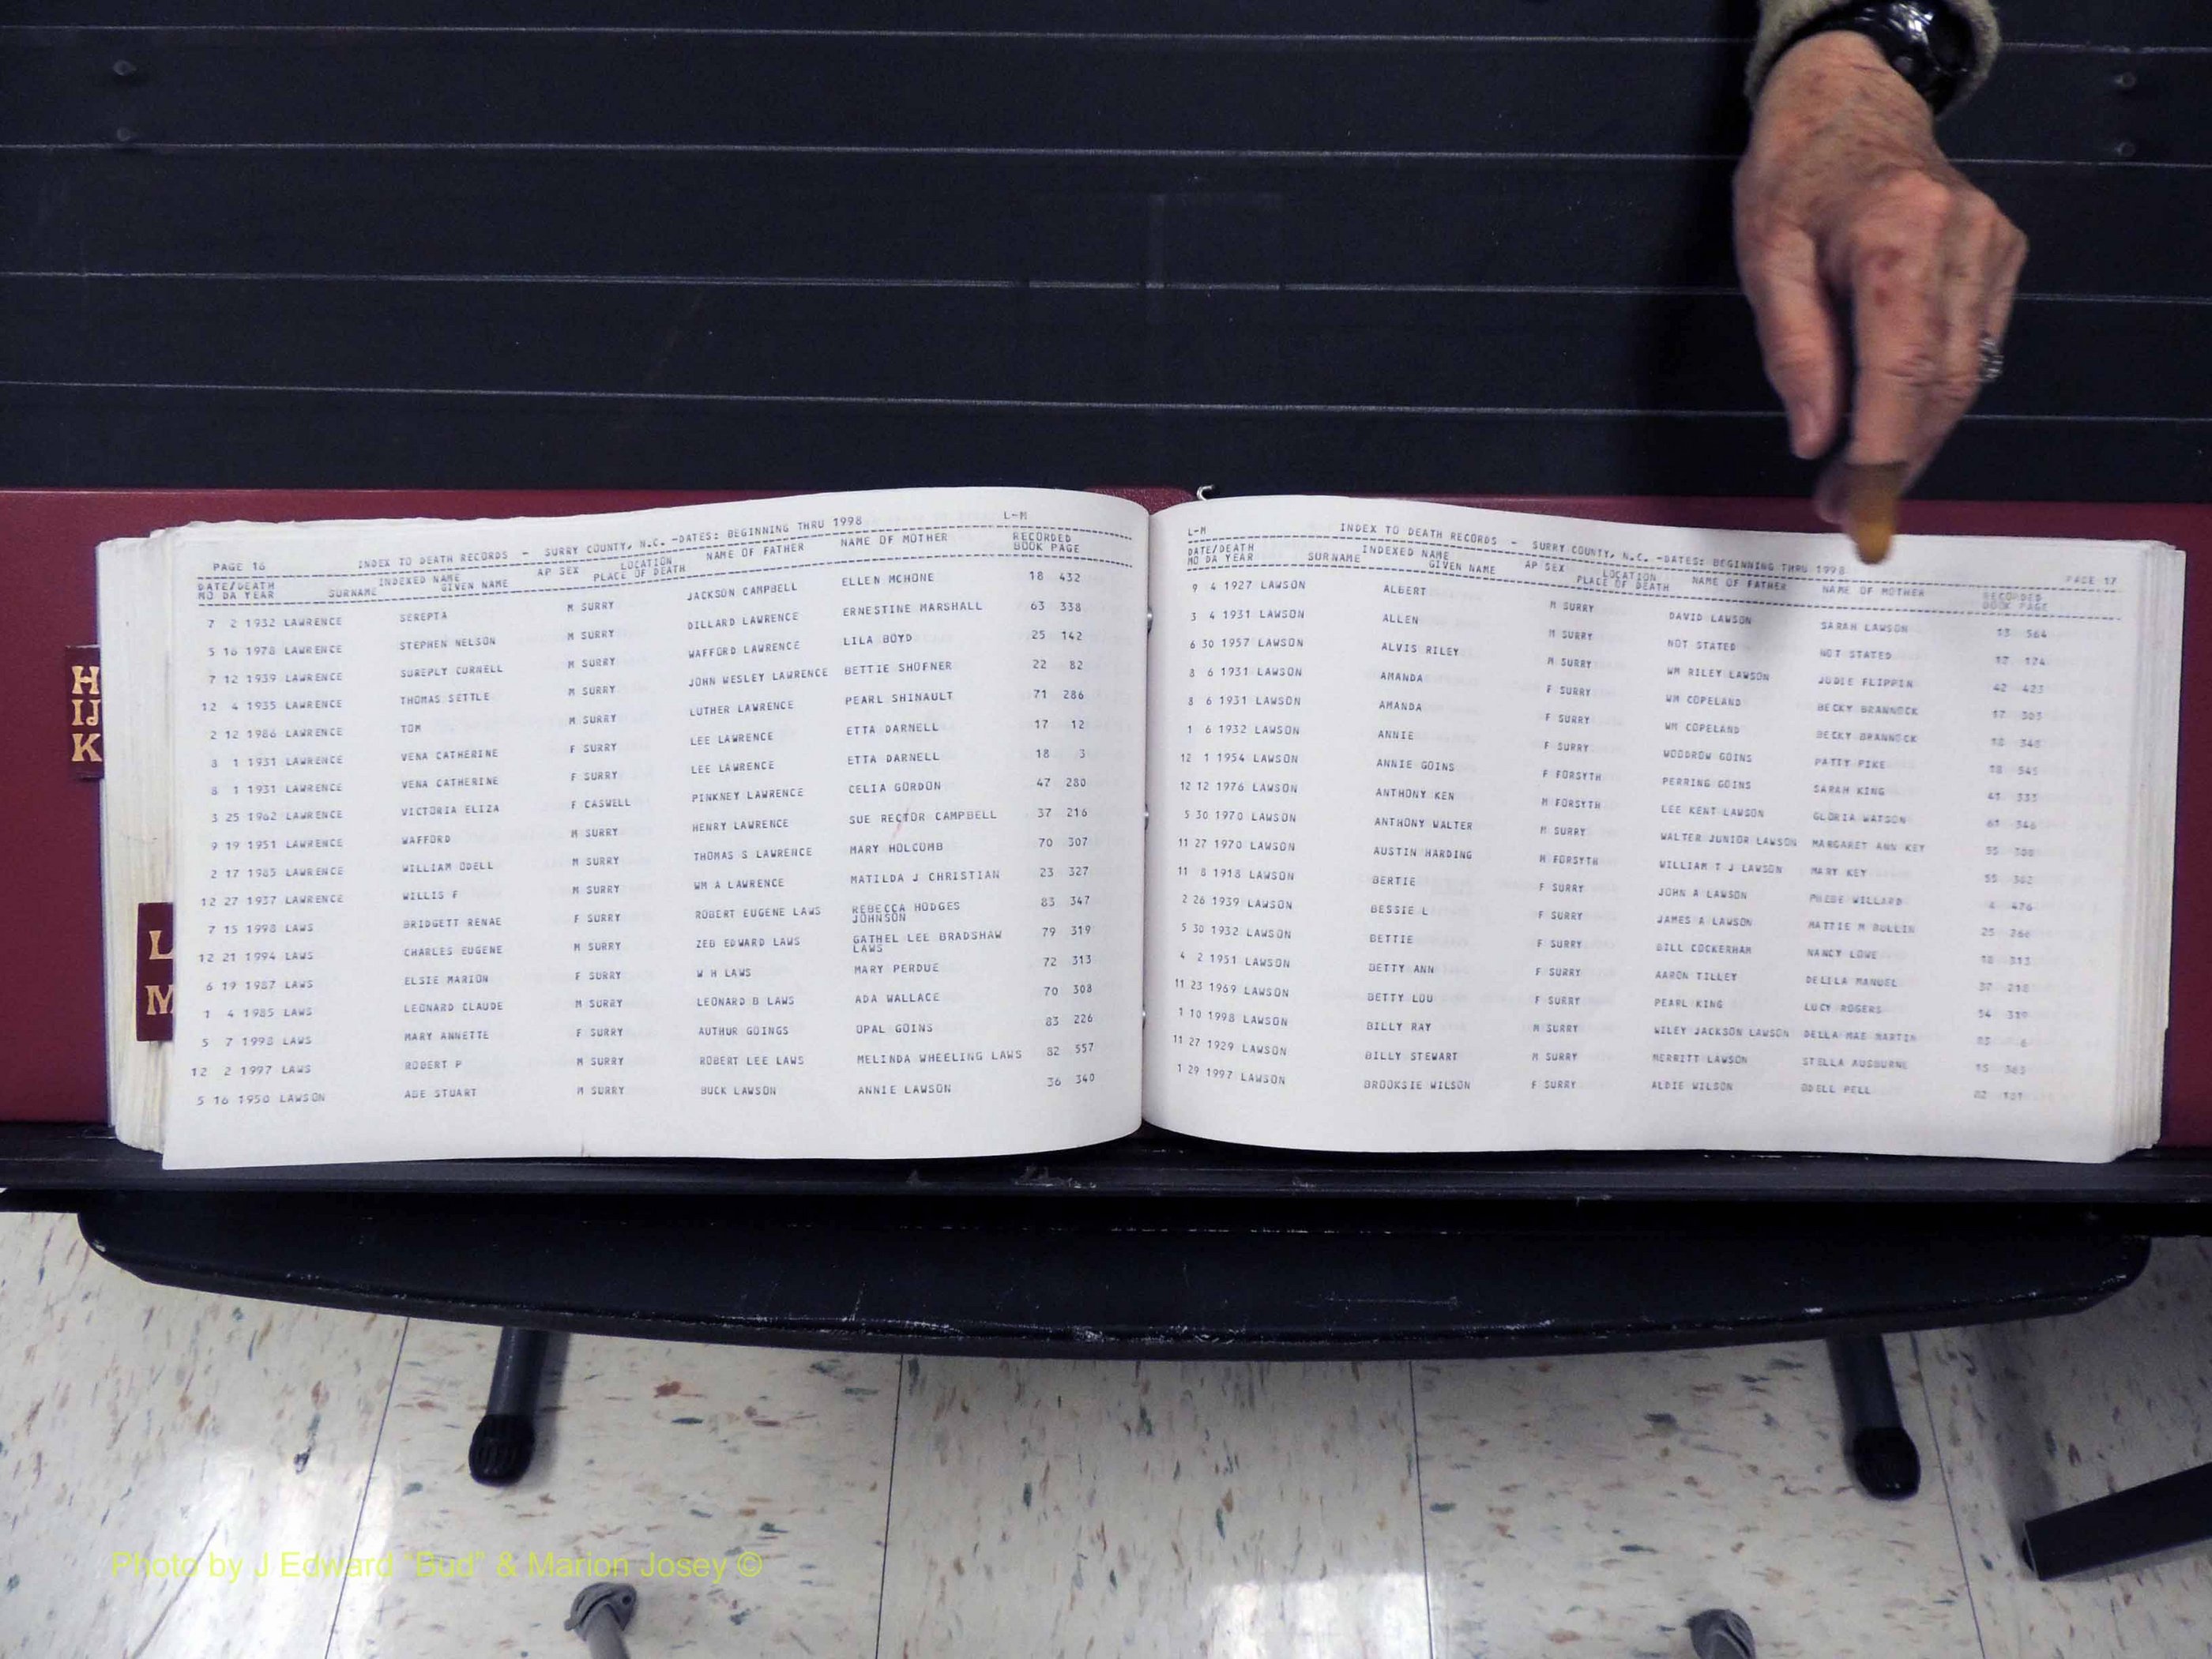 H
IJ
K
L
M
PAGE 16 INDEX TO DEATH RECORDS - SURRY COUNTY, N.C. -DATES: BEGINNING THRU 1998 L-M
DATE/DEATH INDEXED NAME AP SEX LOCATION NAME OF FATHER NAME OF MOTHER RECORDED
MO DA YEAR SURNAME GIVEN NAME PLACE OF DEATH BOOK PAGE
7 2 1932 LAWRENCE SEREPTA M SURRY JACKSON CAMPBELL ELLEN MCHONE 18 432
5 16 1978 LAWRENCE STEPHEN NELSON M SURRY DILLARD LAWRENCE ERNESTINE MARSHALL 63 338
7 12 1939 LAWRENCE SUREPLY CURNELL M SURRY WAFFORD LAWRENCE LILA BOYD 25 142
12 4 1935 LAWRENCE THOMAS SETTLE M SURRY JOHN WESLEY LAWRENCE BETTIE SHOFNER 22 82
2 12 1986 LAWRENCE TOM M SURRY LUTHER LAWRENCE PEARL SHINAULT 71 286
8 1 1931 LAWRENCE VENA CATHERINE F SURRY LEE LAWRENCE ETTA DARNELL 17 12
8 1 1931 LAWRENCE VENA CATHERINE F SURRY LEE LAWRENCE ETTA DARNELL 18 3
3 25 1962 LAWRENCE VICTORIA ELIZA F CASWELL PINKNEY LAWRENCE CELIA GORDON 47 280
9 19 1951 LAWRENCE WAFFORD M SURRY HENRY LAWRENCE SUE RECTOR CAMPBELL 37 216
2 17 1985 LAWRENCE WILLIAM ODELL M SURRY THOMAS S LAWRENCE MARY HOLCOMB 70 307
12 27 1937 LAWRENCE WILLIS F M SURRY WM A LAWRENCE MATILDA J CHRISTIAN 23 327
7 15 1998 LAWS BRIDGETT RENAE F SURRY ROBERT EUGENE LAWS REBECCA HODGES 83 347
JOHNSON
12 21 1994 LAWS CHARLES EUGENE M SURRY ZEB EDWARD LAWS GATHEL LEE BRADSHAW 79 319
LAWS
6 19 1987 LAWS ELSIE MARION F SURRY W H LAWS MARY PERDUE 72 313
1 4 1985 LAWS LEONARD CLAUDE M SURRY LEONARD B LAWS ADA WALLACE 70 308
5 7 1998 LAWS MARY ANNETTE F SURRY AUTHUR GOINGS OPAL GOINS 83 226
12 2 1997 LAWS ROBERT P M SURRY ROBERT LEE LAWS MELINDA WHEELING LAWS 82 557
5 16 1950 LAWSON ABE STUART M SURRY BUCK LAWSON ANNIE LAWSON 36 340
L-M INDEX TO DEATH RECORDS - SURRY COUNTY, N.C. -DATES: BEGINNING THRU 1998 PAGE 17
DATE/DEATH INDEXED NAME AP SEX LOCATION NAME OF FATHER NAME OF MOTHER RECORDED
MO DA YEAR SURNAME GIVEN NAME PLACE OF DEATH BOOK PAGE
9 4 1927 LAWSON ALBERT M SURRY DAVID LAWSON SARAH LAWSON 13 564
3 4 1931 LAWSON ALLEN M SURRY NOT STATED NOT STATED 17 174
6 30 1957 LAWSON ALVIS RILEY M SURRY WM RILEY LAWSON JUDIE FLIPPIN 42 423
8 6 1931 LAWSON AMANDA F SURRY WM COPELAND BECKY BRANNOCK 17 303
8 6 1931 LAWSON AMANDA F SURRY WM COPELAND BECKY BRANNOCK 18
1 6 1932 LAWSON ANNIE F SURRY WOODROW GOINS PATTY PIKE 18 545
12 1 1954 LAWSON ANNIE GOINS F FORSYTH PERRING GOINS SARAH KING 41 333
12 12 1976 LAWSON ANTHONY KEN M FORSYTH LEE KENT LAWSON GLORIA WATSON 61 346
5 30 1970 LAWSON ANTHONY WALTER M SURRY WALTER JUNIOR LAWSON MARGARET ANN KEY 55
11 27 1970 LAWSON AUSTIN HARDING M FORSYTH WILLIAM T J LAWSON MARY KEY 55 362
11 8 1918 LAWSON BERTIE F SURRY JOHN A LAWSON PHEBE WILLARD 4 476
2 26 1939 LAWSON BESSIE L F SURRY JAMES A LAWSON MATTIE M BULLIN 25 266
5 30 1932 LAWSON BETTIE F SURRY BILL COCKERHAM NANCY LOWE 18 313
4 2 1951 LAWSON BETTY ANN F SURRY AARON TILLEY DELILA MANUEL 37 218
11 23 1969 LAWSON BETTY LOU F SURRY PEARL KING LUCY ROGERS 54 319
1 10 1998 LAWSON BILLY RAY M SURRY WILEY JACKSON LAWSON DELLA MAE MARTIN 83 6
11 27 1929 LAWSON BILLY STEWART M SURRY MERRITT LAWSON STELLA AUSBURNE 15 363
1 29 1997 LAWSON BROOKSIE WILSON F SURRY ALDIE WILSON ODELL PELL 82
Photo by J Edward "Bud" & Marion Josey ©